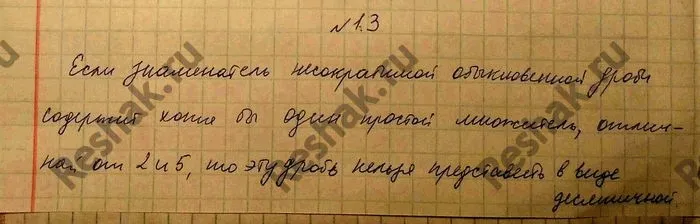 № 1.3
Если знаменатель несократимой обыкновенной дроби
содержит хотя бы один простой множитель, отлич-
ный от 2 и 5, то эту дробь нельзя представить в виде
десятичной.
Reshak.ru
Reshak.ru
Reshak.ru
Reshak.ru